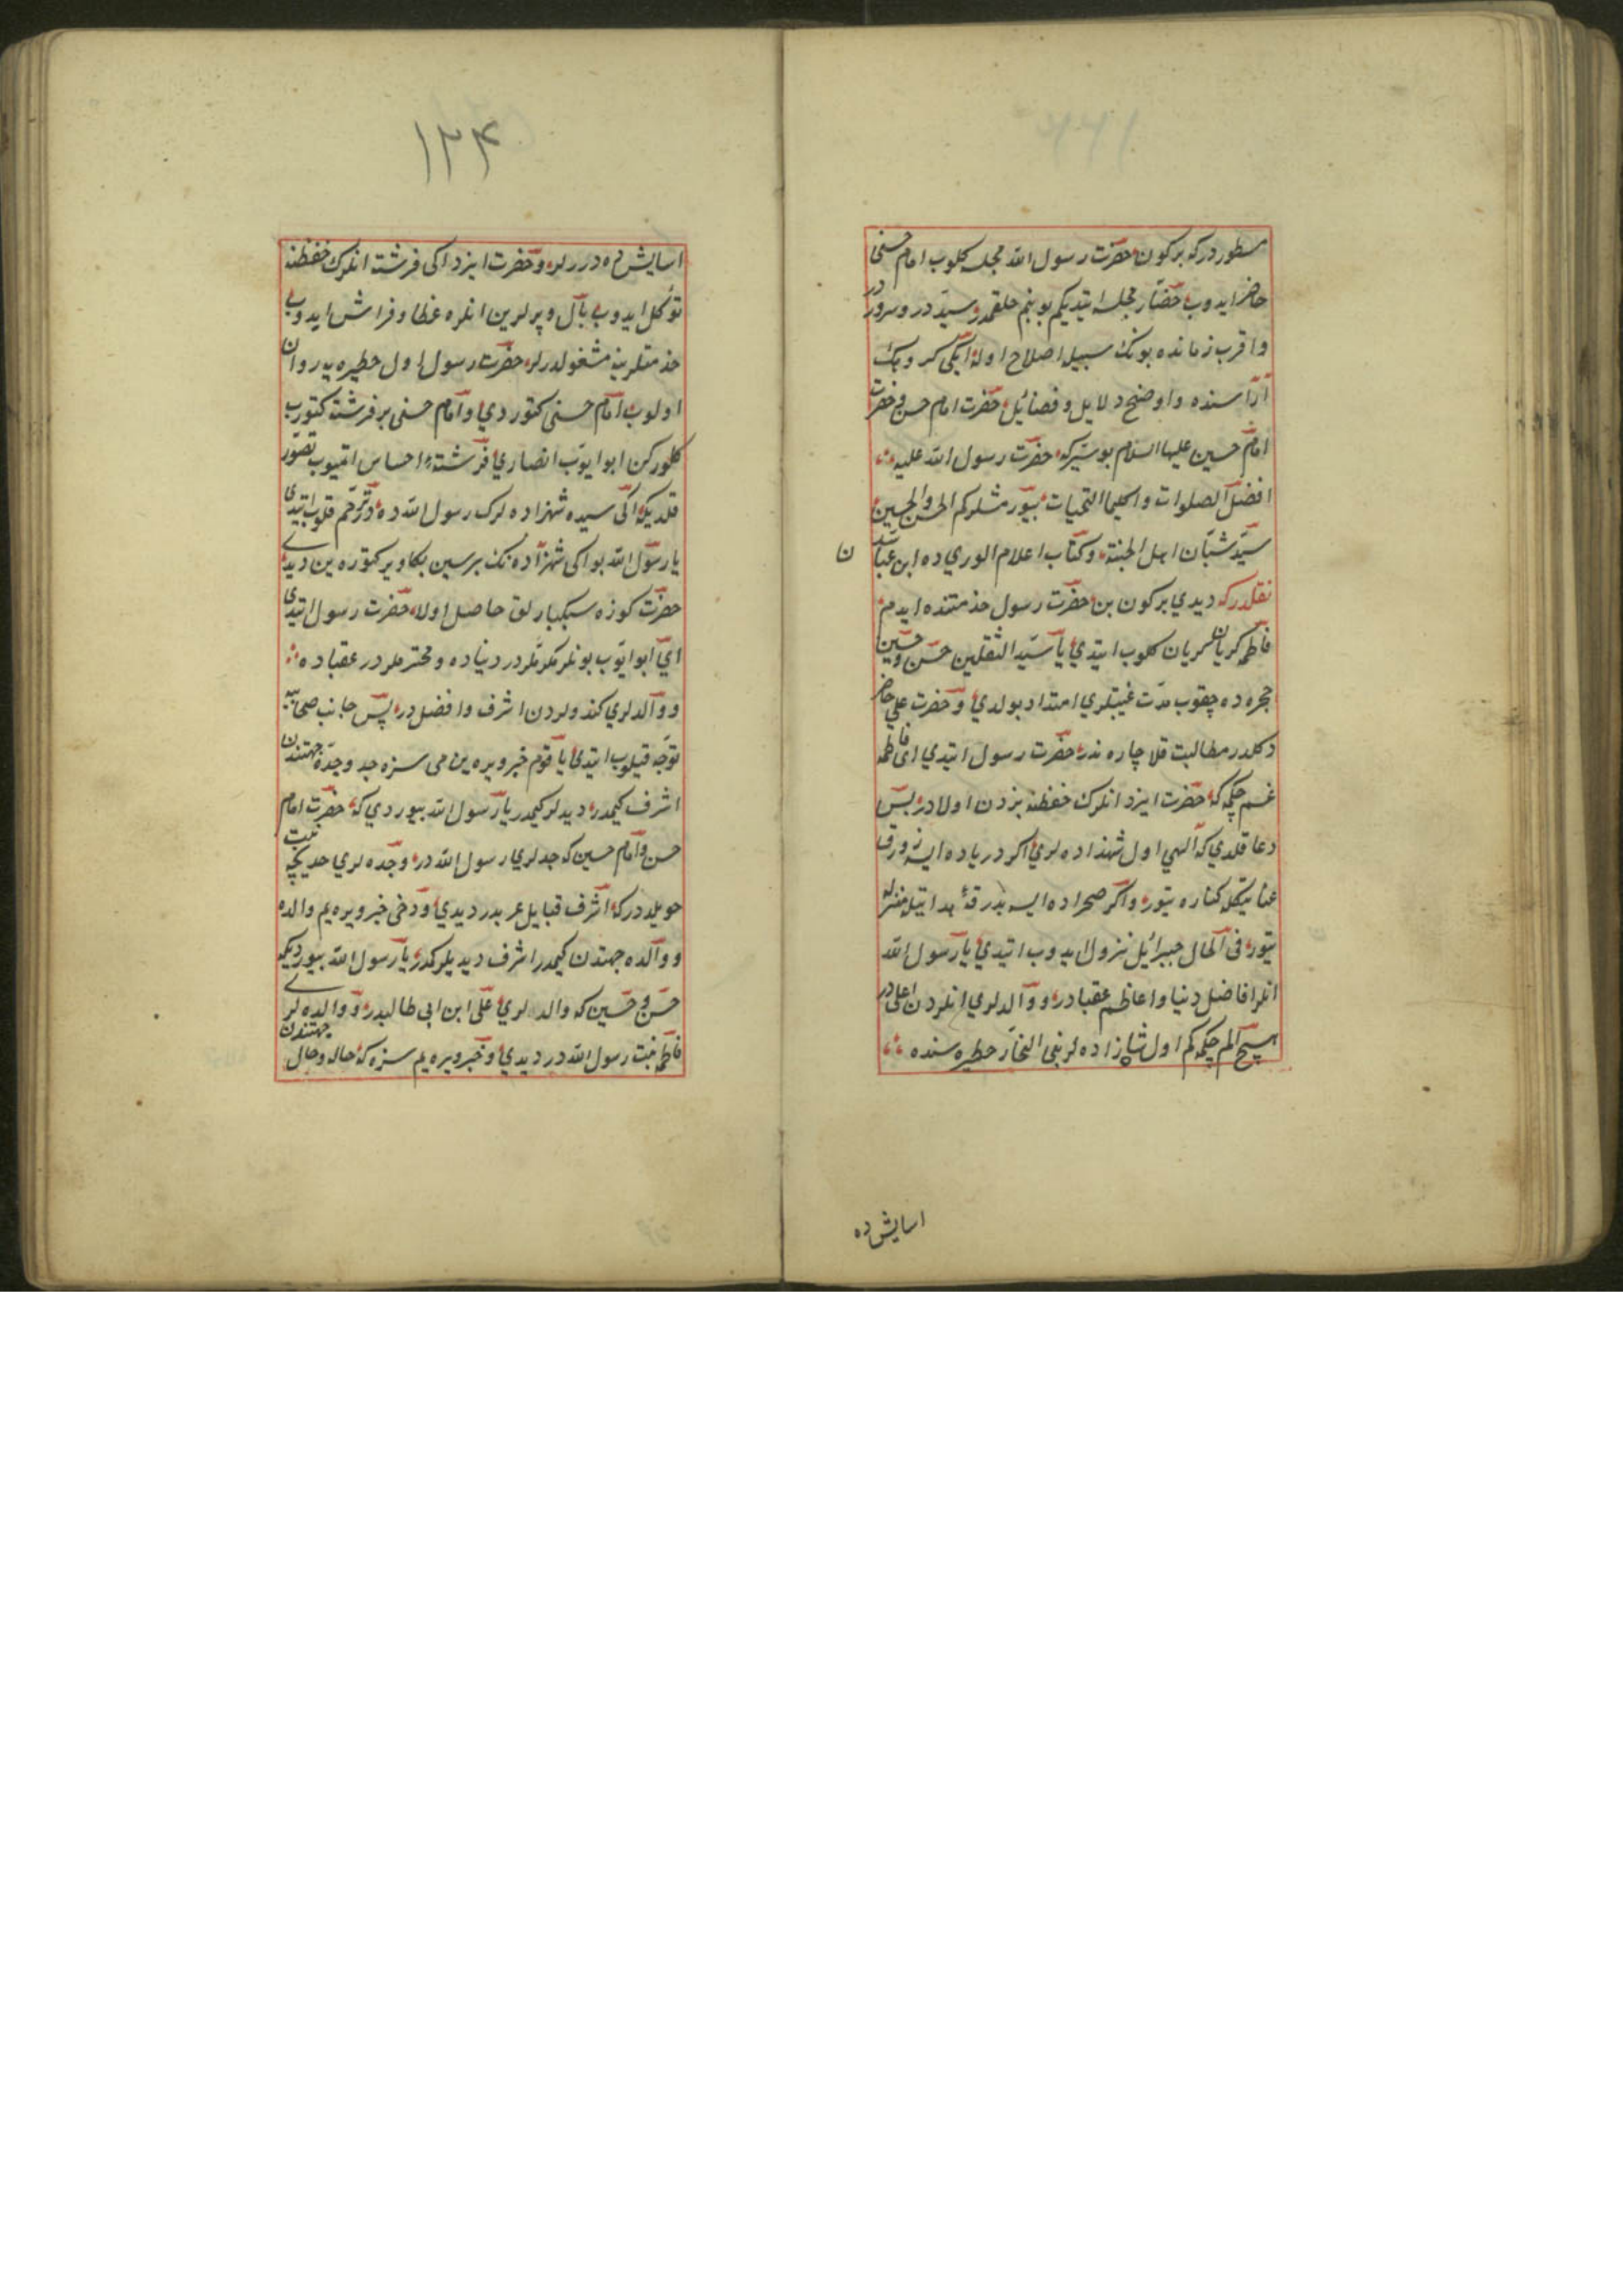 مسطور درکه بر کون حضرت رسول الله مجلسه کلوب امام حسنی
حاضر ایدوب حضار مجلسه ایتدیکم بو بنم خلقمدر سیددر و سروردر
واقرب زمانده بونک سبیله اصلاح اوله ایکی کروهک
آراسنده واوضح دلایل و فضائل حضرت امام حسن و حضرت
امام حسین علیهما السلام بو بشرکه حضرت رسول الله علیه
افضل الصلوات واکمل التحیات بیورمشلرکم الحسن والحسین
سید شبان اهل الجنة وکتاب اعلام الوری ده ابن عباسدن
نقلدرکه دیدی بر کون بن حضرت رسول خدمتنده ایدم
فاطمه کریان کریان کلوب ایتدی یا سید الثقلین حسن و حسین
حجره ده چقوب مدت غیبتلری امتداد بولدی و حضرت علی حاضر
دکلدر مطالبت قلا چاره ندر حضرت رسول ایتدی ای فاطمه
غم چکمه که حضرت ایزد انلرک حفظنه بزدن اولادر پس
دعا قلدی که الهی اول شهزاده لری اکر دریاده ایسه زورق
عنایتکله کناره یتور واکر صحراده ایسه بدرقهٔ هدایتله منزله
یتور فی الحال جبرائیل نزول ایدوب ایتدی یا رسول الله
انلر افاضل دنیا واعاظم عقبادر و والدلری انلردن اعلی در
هیچ الم چکمه کم اول شاهزاده لر بنی النجار حظیره سنده
اسایش ده
۱۲۴
اسایش ده درلر و حضرت ایزد ایکی فرشته انلرک حفظنه
توکل ایدوب بال و پرلرین انلره غطا و فراش ایدوب
خدمتلرینه مشغولدرلر حضرت رسول اول حظیره یه روان
اولوب امام حسنی کتوردی و امام حسنی بر فرشته کتورب
کلورکن ابو ایوب انصاری فرشته احساس ایتمیوب تصور
قلدیکه ایکی سیده شهزاده لرک رسول الله ده در ترحم قلوب ایتدی
یا رسول الله بو ایکی شهزاده نک برسین بکا ویر کتوره ین دیدی
حضرت کوزه سبکبارلق حاصل اولا حضرت رسول ایتدی
ای ابو ایوب بونلر مکرملردر دنیاده و محترملردر عقباده
و والدلری کندولردن اشرف وافضلدر پس جانب صحابه یه
توجه قیلوب ایتدی یا قوم خبر ویره ین می سزه جد و جده جهتندن
اشرف کیمدر دیدلر کیمدر یا رسول الله بیوردی که حضرت امام
حسن و امام حسین که جدلری رسول الله در و جده لری خدیجه بنت
خویلددرکه اشرف قبایل عربدر دیدی و دخی خبر ویره یم والد
و والده جهتدن کیمدر اشرف دیدیلر کمدر یا رسول الله بیوردیکه
حسن و حسین که والدلری علی ابن ابی طالبدر و والده لری
فاطمه بنت رسول الله در دیدی و خبر ویره یم سزه که خاله و خال جهتندن